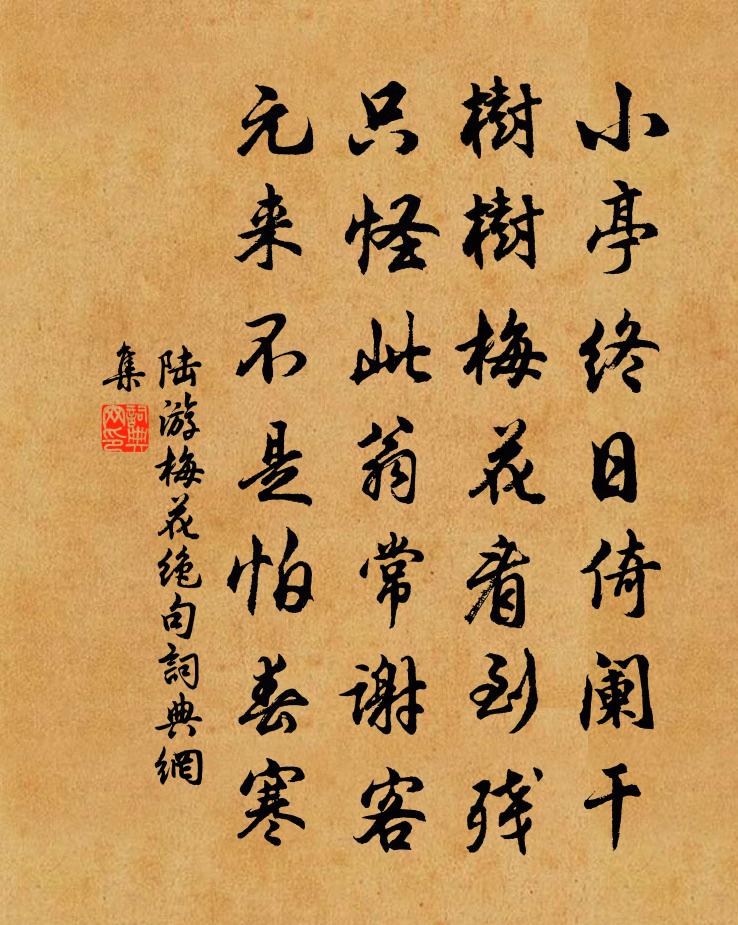 小亭终日倚阑干
樹樹梅花看到残
只怪此翁常谢客
元来不是怕春寒
陆游梅花绝句詞典網
集
詞典网印